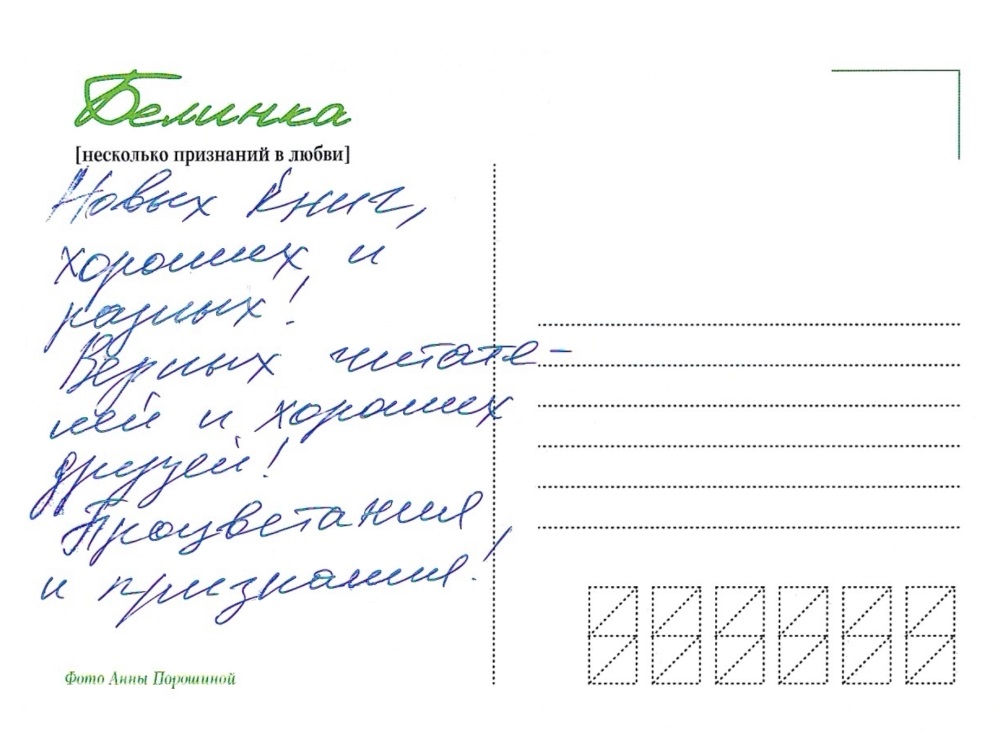 Белинка
[несколько признаний в любви]
Новых книг,
хороших и
разных!
Верных читате-
лей и хороших
друзей!
Процветания
и признания!
Фото Анны Порошиной